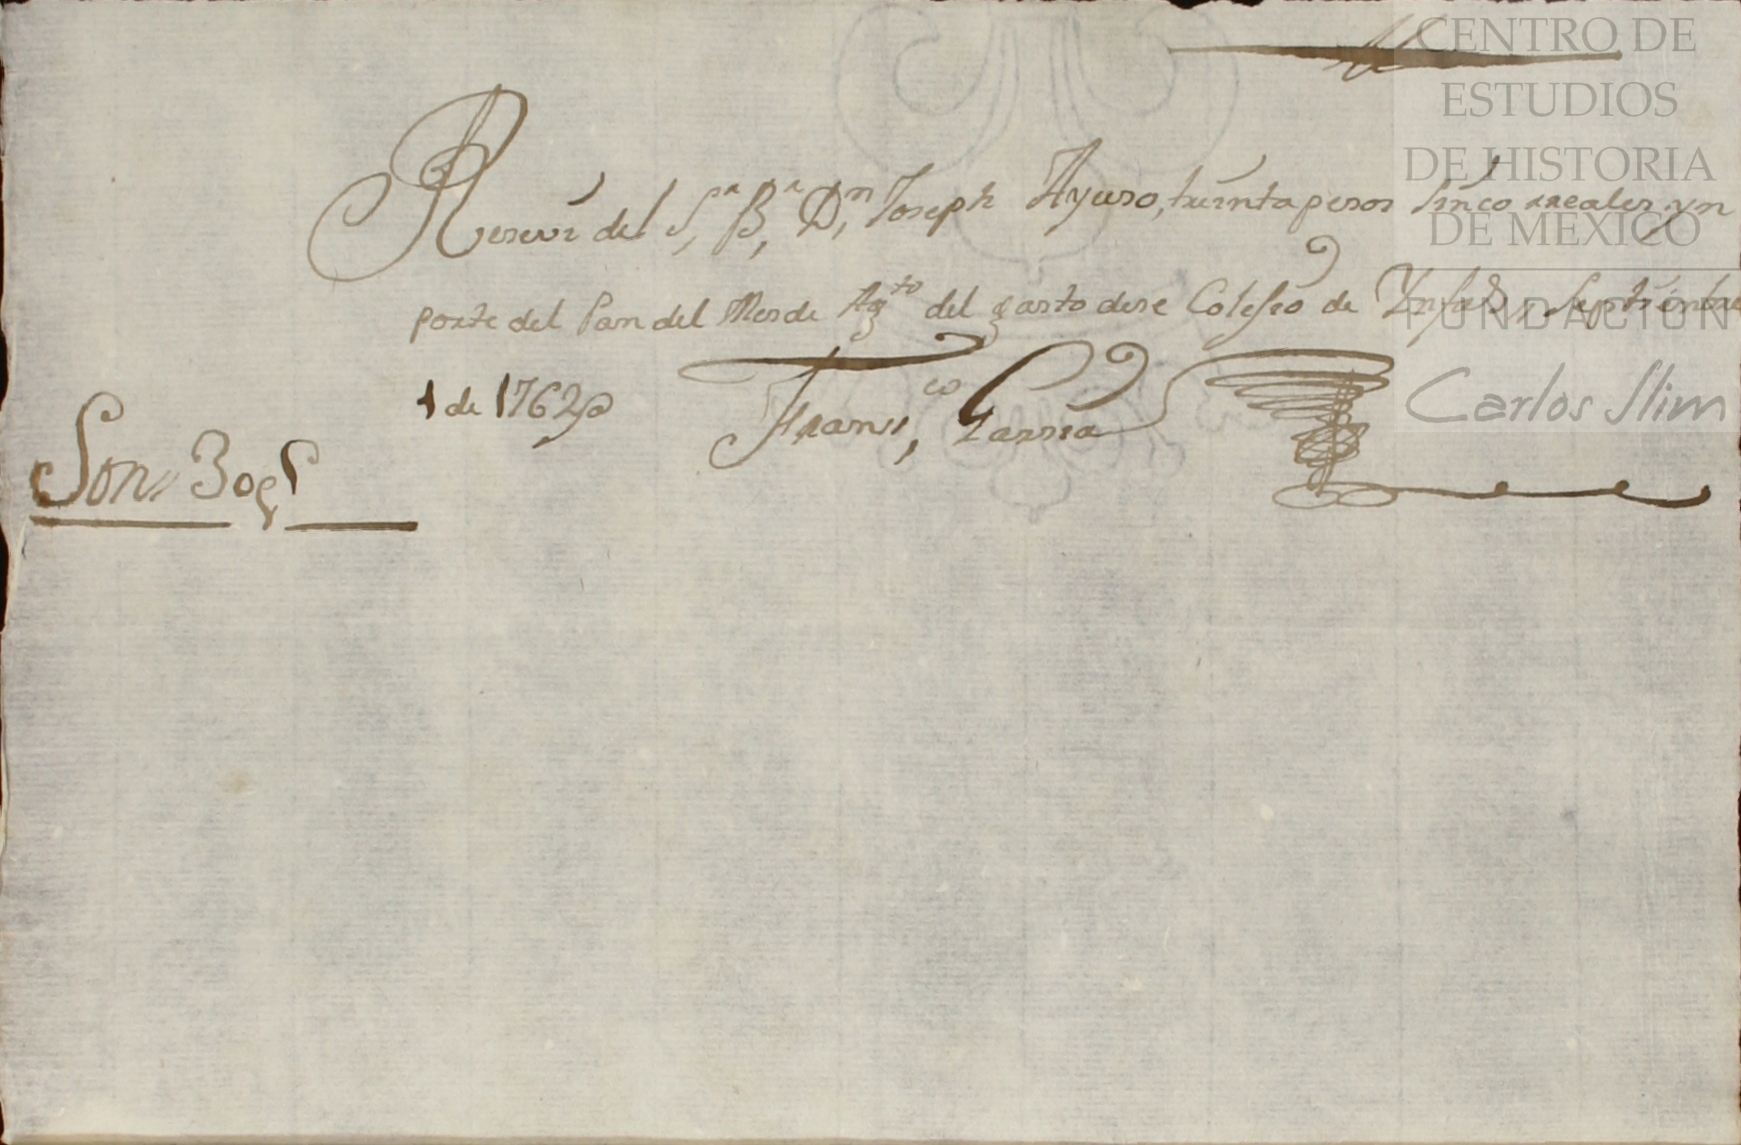 CENTRO DE
ESTUDIOS
DE HISTORIA
DE MEXICO
FUNDACION
Carlos Slim
Reseui del S.r B.r D.n Joseph Ayuso, treinta pesos sinco rreales yn
porte del Pan del Mes de Ag.to del gasto dese Colesio de Septiembre
1 de 1762
Fransi,co Garsia
Son, 30p5